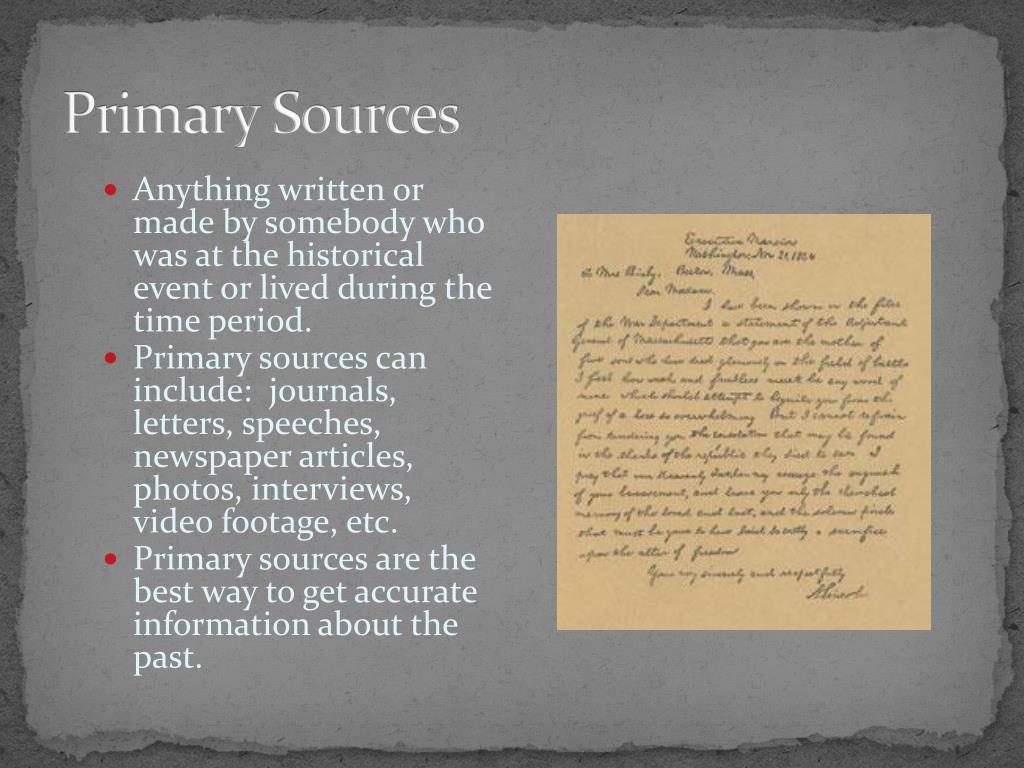 Primary Sources
• Anything written or
made by somebody who
was at the historical
event or lived during the
time period.
• Primary sources can
include:  journals,
letters, speeches,
newspaper articles,
photos, interviews,
video footage, etc.
• Primary sources are the
best way to get accurate
information about the
past.
Executive Mansion
Washington, Nov 21, 1864
To Mrs Bixby, Boston, Mass,
Dear Madam,
I have been shown in the files
of the War Department a statement of the Adjutant
General of Massachusetts that you are the mother of
five sons who have died gloriously on the field of battle
I feel how weak and fruitless must be any word of
mine which should attempt to beguile you from the
grief of a loss so overwhelming But I cannot refrain
from tendering you the consolation that may be found
in the thanks of the republic they died to save I
pray that our Heavenly Father may assuage the anguish
of your bereavement, and leave you only the cherished
memory of the loved and lost, and the solemn pride
that must be yours to have laid so costly a sacrifice
upon the altar of freedom
Yours very sincerely and respectfully
A Lincoln